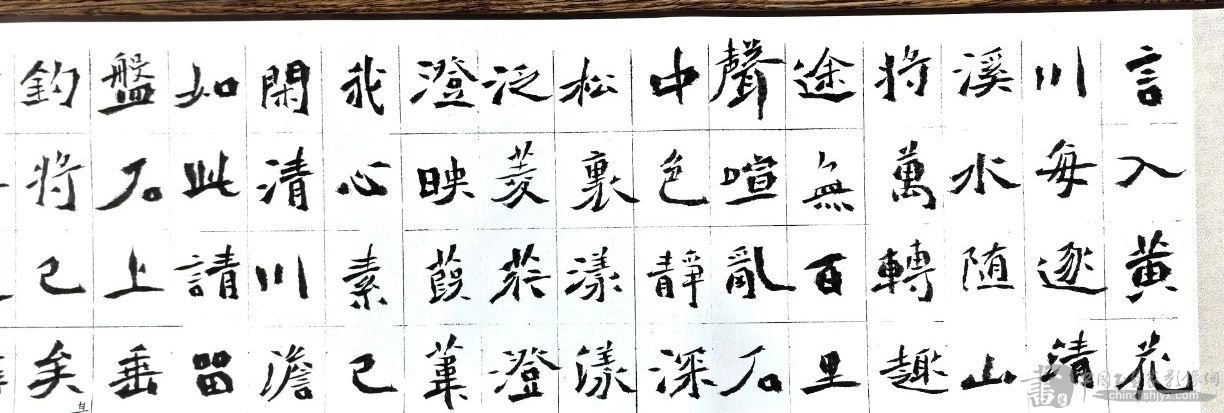 言入黄花
川每逐清
溪水随山
将萬轉趣
途無百里
聲喧亂石
中色靜深
松裏漾漾
泛菱荇澄
澄映葭葦
我心素已
閑清川澹
如此請留
盤石上垂
釣将已矣